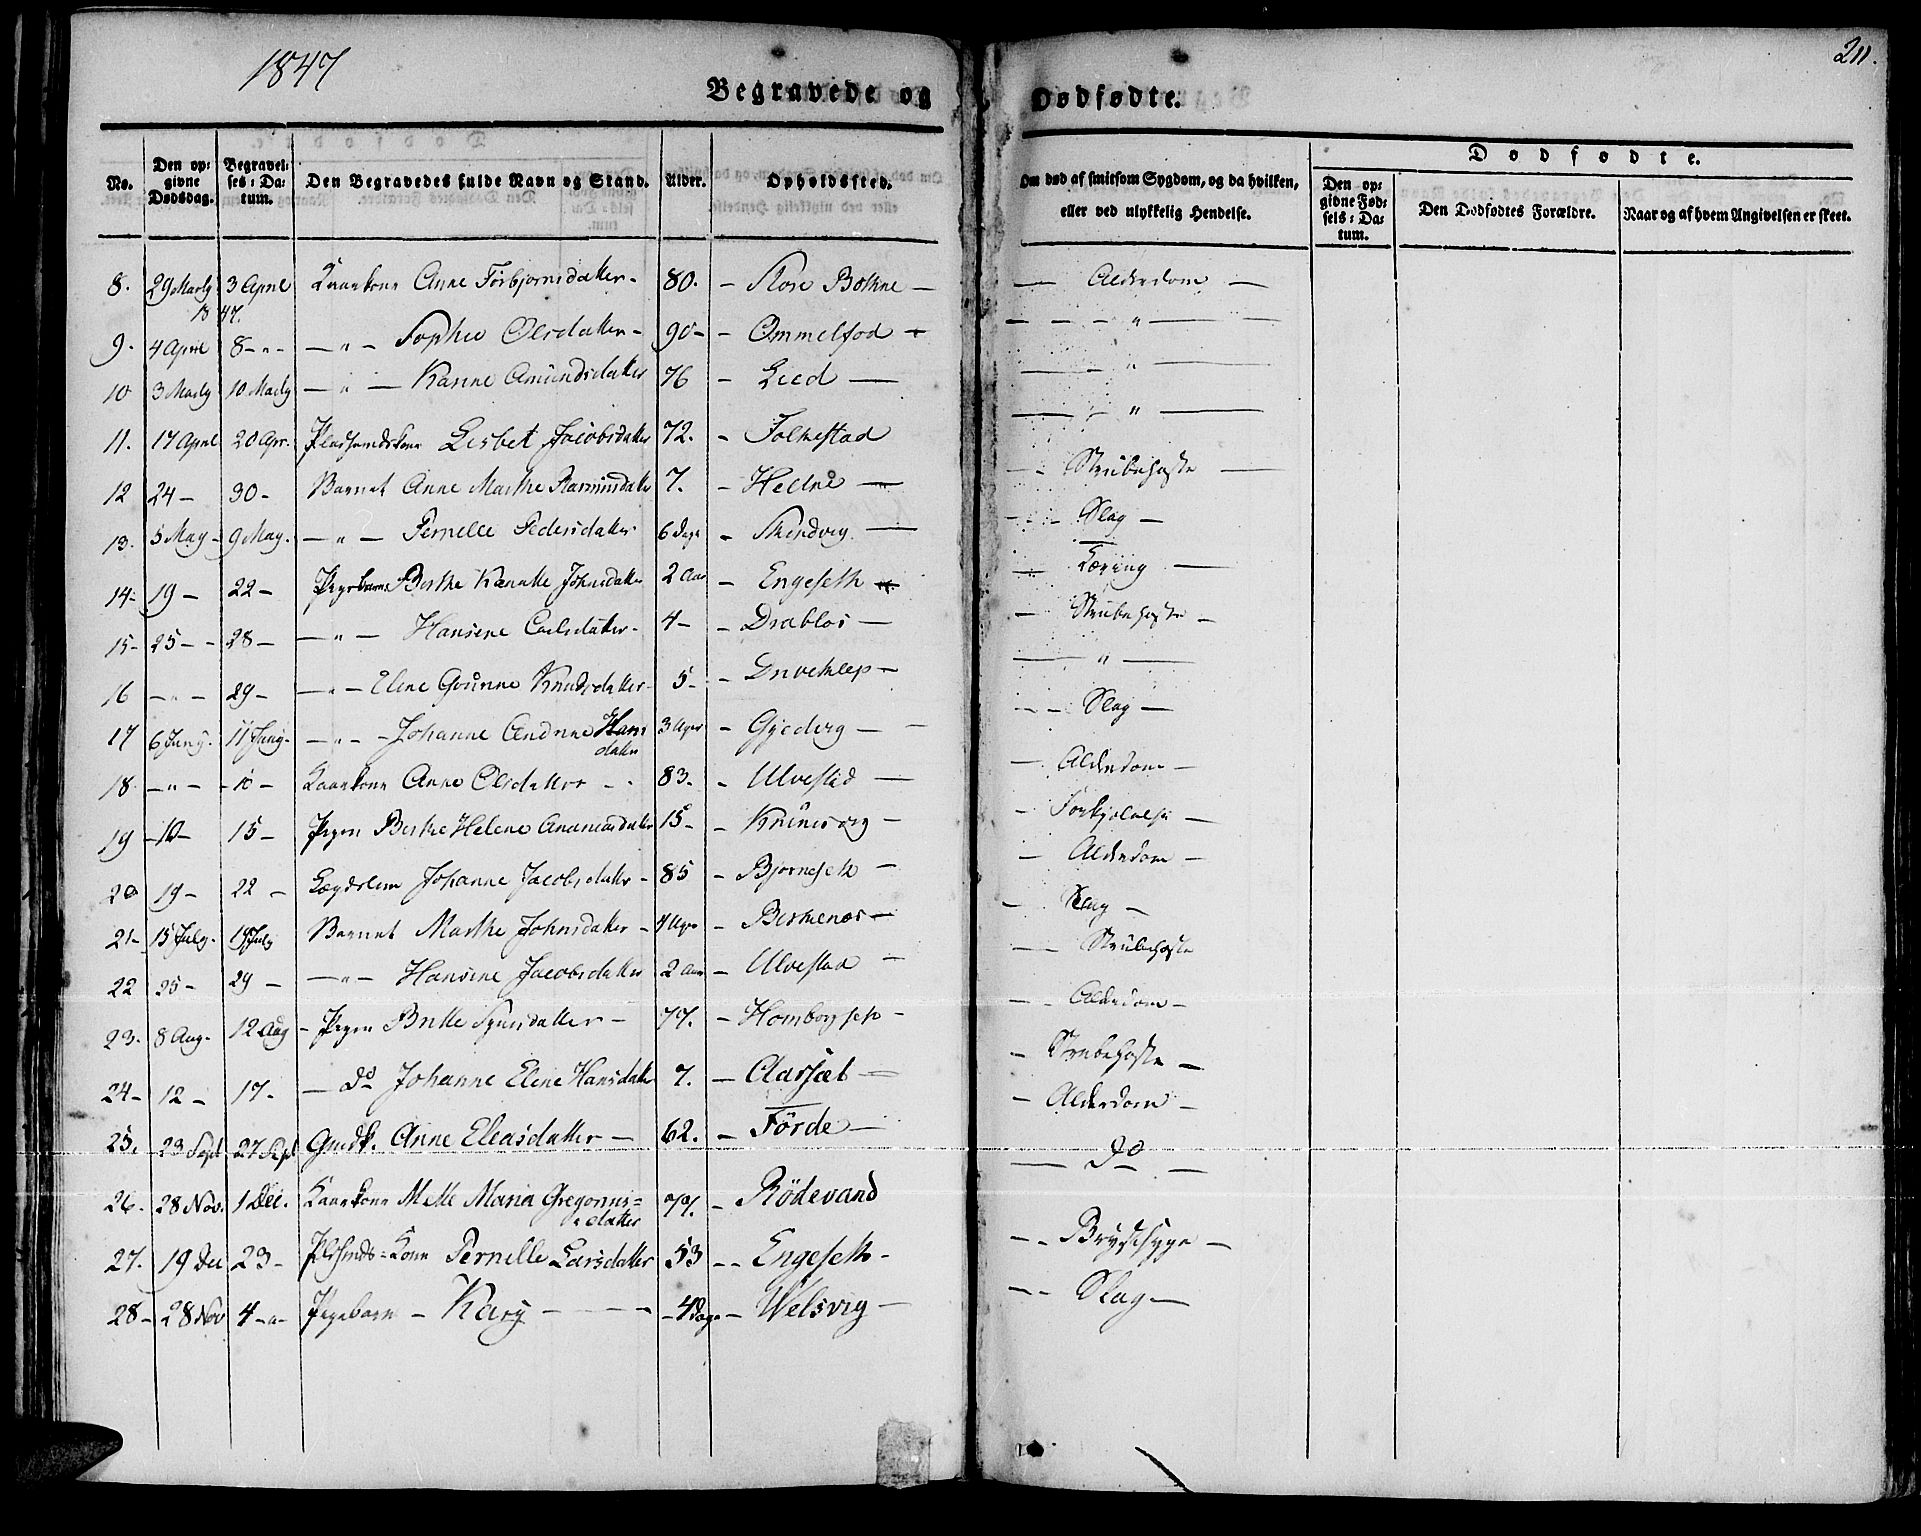 1847
211.
Begravede og Dødfødte.
No. | Den opgivne Dødsdag. | Begravelses-Datum. | Den Begravedes fulde Navn og Stand. | Alder. | Opholdssted. | Om død af smitsom Sygdom, og da hvilken, eller ved ulykkelig Hendelse. | Dødfødte. | Den opgivne Fødsels-Datum. | Den Dødfødtes Forældre. | Naar og af hvem Angivelsen er skeet.
8. | 29 Marty 1847. | 3 April | Kaarkone Anne Torbjørnsdatter - | 80. | - Store Bothne - | - Alderdom -
9. | 4 April | 8 - " - | - " - Sophie Olsdatter - | 90 - | - Ommelfod - | - - - " -
10 | 3 Marty | 10 Marty | - " - Hanne Amundsdatter | 76 | - Leed - | - " -
11. | 17 April | 20 Apr. | Pladsmdskone Lisbet Jacobsdatter | 72. | - Folkestad | - " -
12 | 24 - | 30 - | Barnet Anne Marthe | 7. | - Hedne - | - Strubehoste -
13. | 5 May - | 9 May. | - " - Pernelle Pedersdatter | 6 Dage | - | - Slag -
14 - | 19 - | 22 - | Berthe Johnsdatter | 2 Aar | - Engeseth | -
15 - | 25 - - | 28 - | - " - Hansine Carlsdatter - | 4 - | - Drabløs - | - Strubehoste -
16 | - " - | 29 - | - " - Eline Gurine Knudsdatter - | 5 - | - | - " -
17 | 6 Juny. | 11 Juny - | - " - Johanne Andrine Hansdatter | 3 Uger | - Gjedvig - | - - Slag -
18. | - " - | - 10 - | Kaarkone Anne Olsdatter - - | 83. | - Ulvestad - | - Alderdom -
19 | - 10 - | 15 - | Pigen Berthe Helene Ananiasdatter | 15 - | - - | - Forkjølelse -
20 | 19 - | 22 - | Lægdslem Johanne Jacobsdatter - | 85 | - Bjørneseth - | - Alderdom -
21 - | 15 July - | 19 July | Barnet Marthe Johnsdatter - | 4 Uger | - Berkenæs - | - Slag -
22 | 25 - | 29 - | - " - Hansine Jacobsdatter | 2 Aar | - Ulvestad - | - Strubehoste
23. | 8 Aug - | 12 Aug | - Pigen Britte | 77. | - Homborgseth - | - - Alderdom -
24 - | 12 - | 17 - | - do Johanne Eline Hansdatter | 7. | - Aarsæt - | - Strubehoste -
25. | 23 Sept | 27 Sept | Gmdk. Anne Eleasdatter - | 62. | - Förde - | - Alderdom -
26. | 28 Nov. | 1 Dec. | Kaarkone Mette Maria Gregoriusdatter | 77. | - Rödevand | - do -
27. | 19 Dec | 23 - | Plsmds-Kone Pernille Larsdatter | 53 | - - Engeseth - | - - Brystsyge -
28 - | 28 Nov | 4 - " - | Pigebarn - Kary - - - - | - 4 Dage | - Welsvig - | - - Slag -